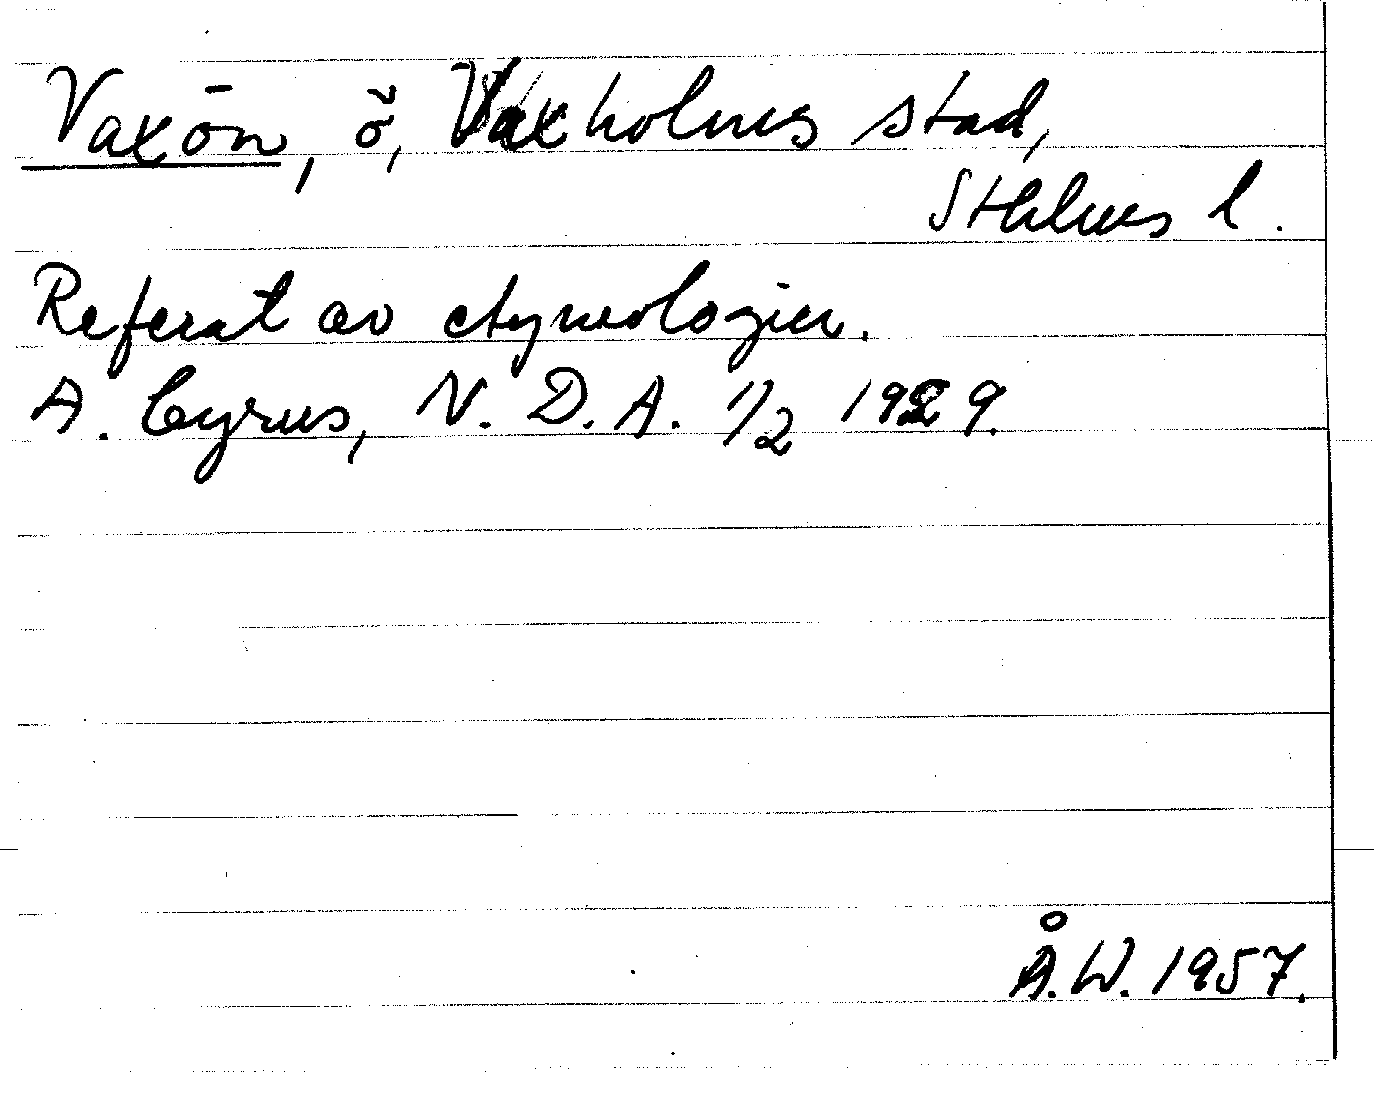 Vaxön, ö, Vaxholms stad,
Sthlms l.
Referat av etymologier.
A. Cyrus, N. D. A. 1/2 1929.
Å. W. 1957.